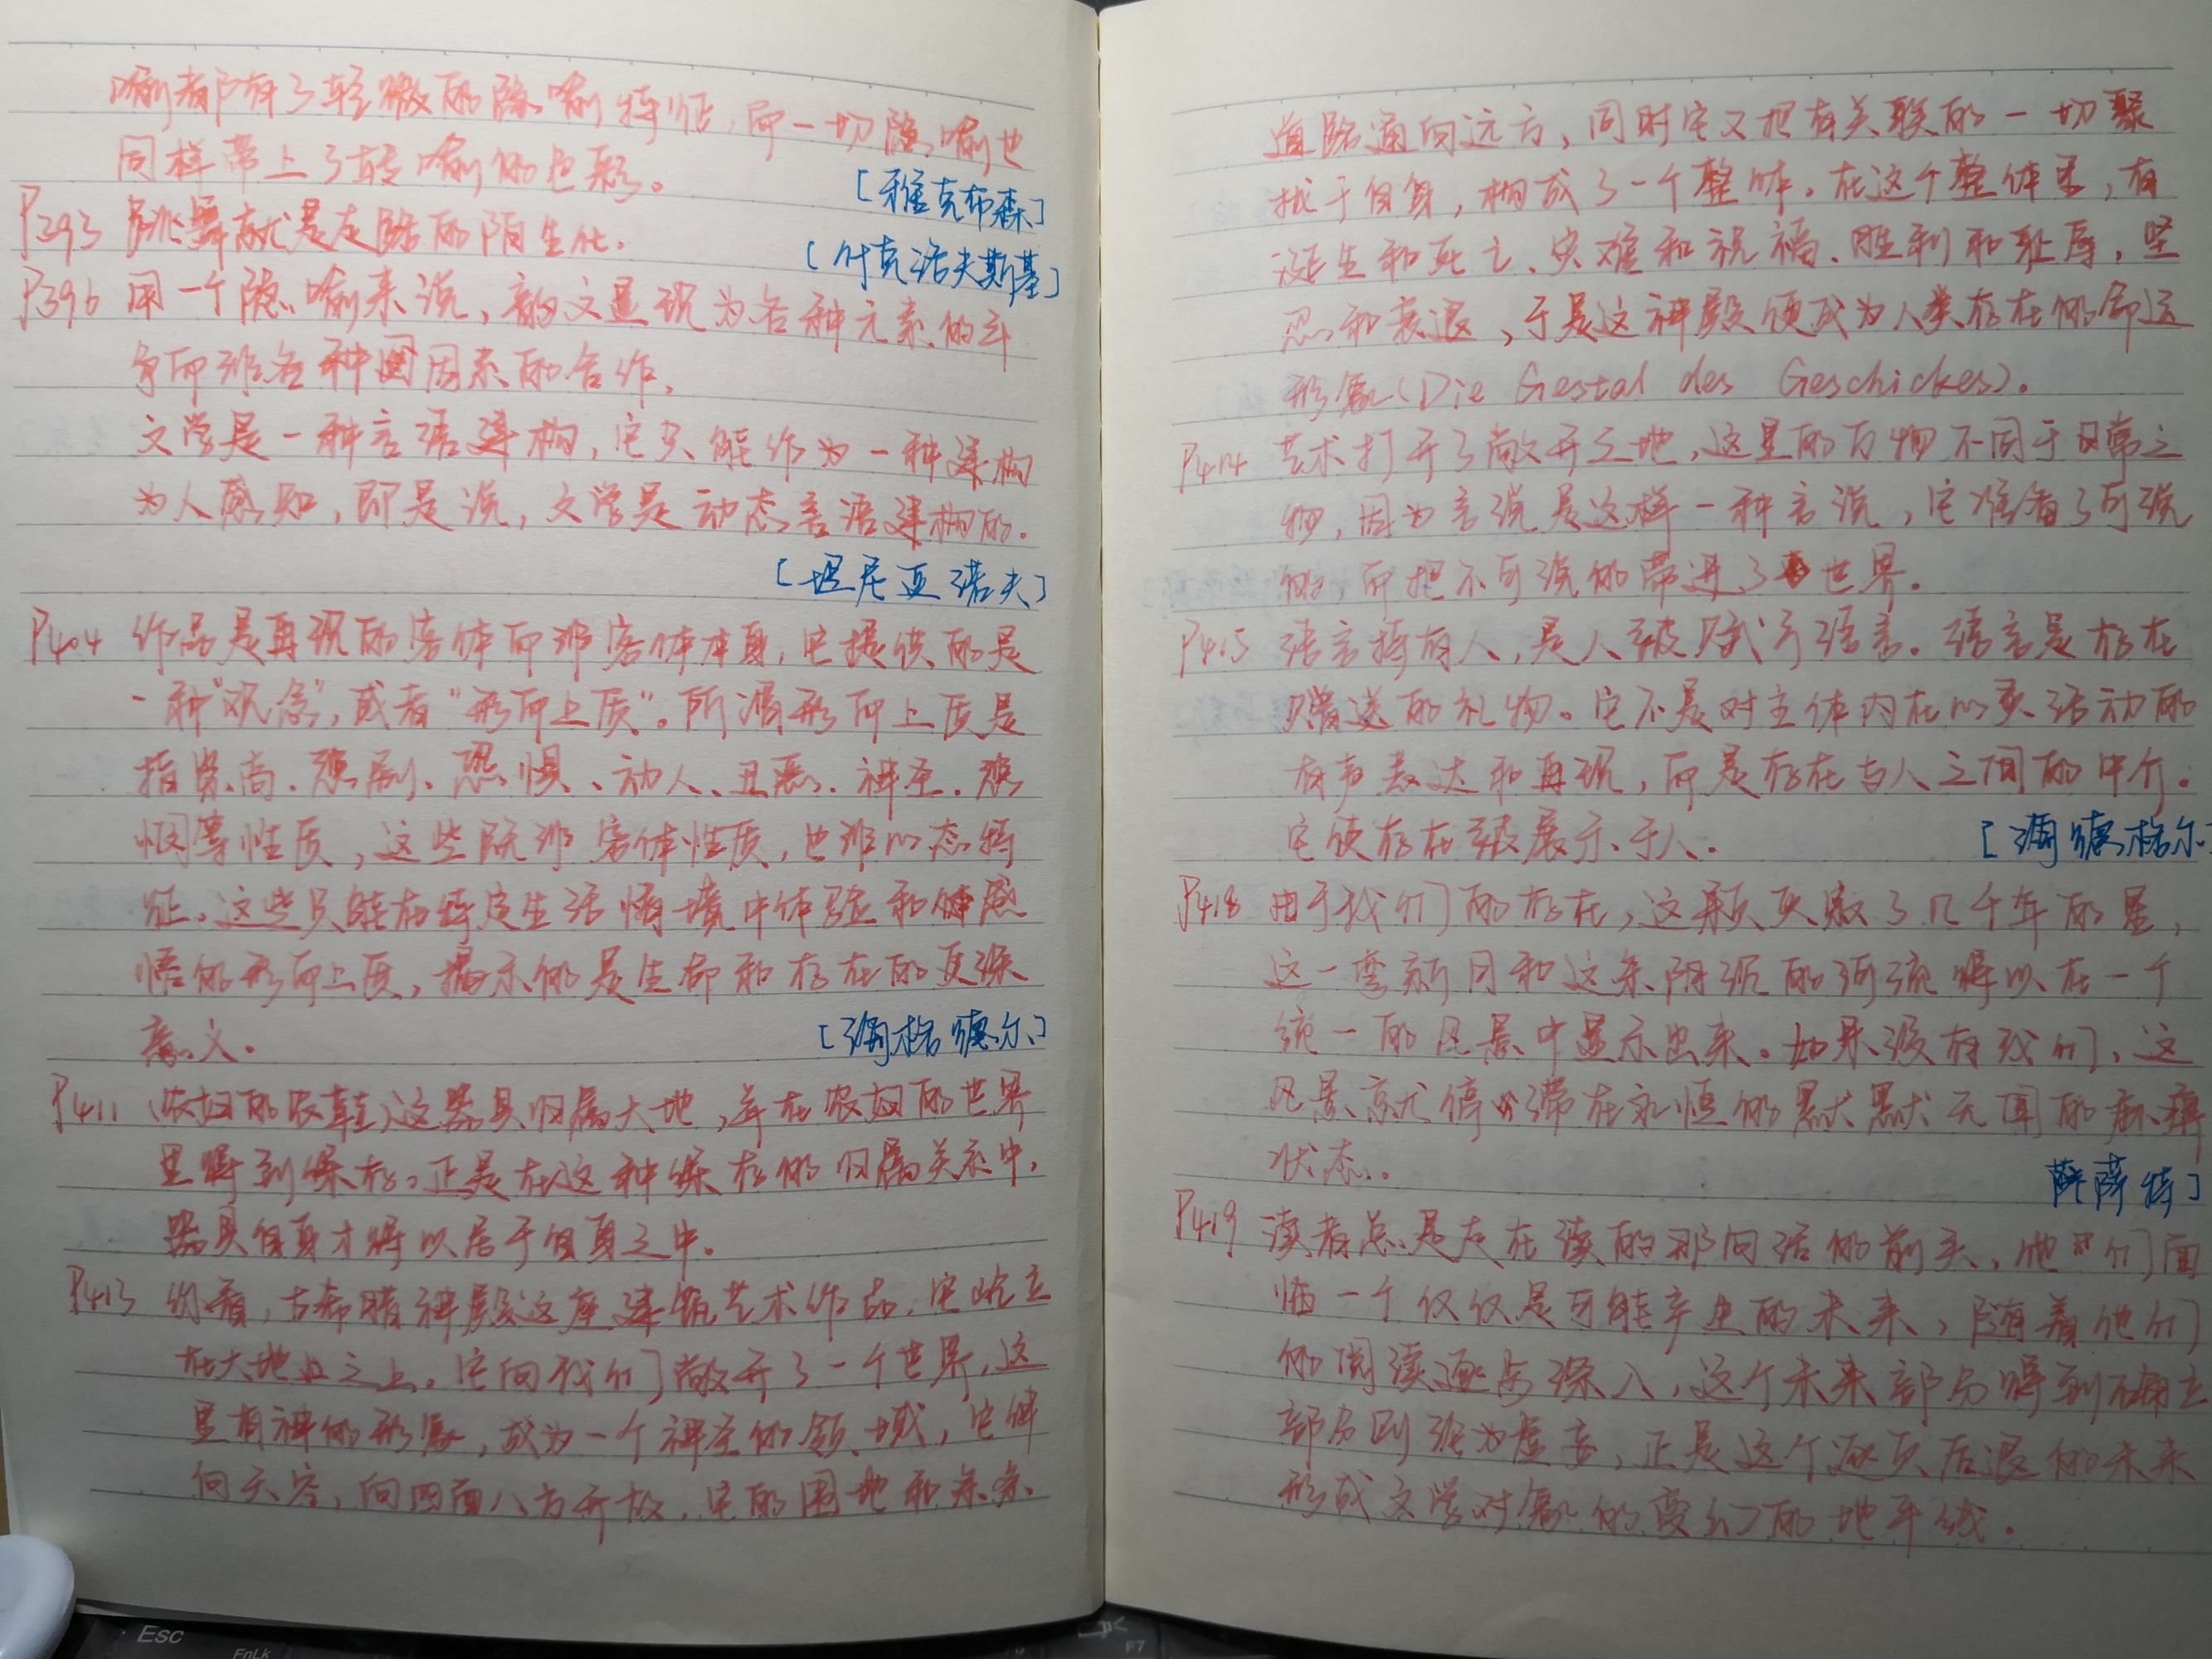 喻都附有了轻微的隐喻特征，而一切隐喻也
同样带上了转喻的色彩。
[雅克布森]
P393 跳舞就是走路的陌生化。
[什克洛夫斯基]
P396 用一个隐喻来说，韵文显现为各种元素的斗
争而非各种因素的合作。
文学是一种言语建构，它只能作为一种建构
为人感知，即是说，文学是动态言语建构的。
[坦尼亚诺夫]
P404 作品是再现的客体而非客体本身，它提供的是
一种"观念"，或者"形而上质"。所谓形而上质是
指崇高、悲剧、恐惧、动人、丑恶、神圣、悲
悯等性质，这些既非客体性质，也非心态特
征。这些只能在特定生活情境中体验和感
悟的形而上质，揭示的是生命和存在的更深
意义。
[海格德尔]
P411 (农妇的农鞋)这器具归属大地，并在农妇的世界
里得到保存。正是在这种保存的归属关系中，
器具自身才得以居于自身之中。
P413 你看，古希腊神殿这座建筑艺术作品，它屹立
在大地之上。它向我们敞开了一个世界，这
里有神的形象，故为一个神圣的领域，它伸
向天空，向四面八方开放，它的围地和条条
道路通向远方，同时它又把有关联的一切聚
拢于自身，构成了一个整体。在这个整体里，有
诞生和死亡、灾难和祝福、胜利和耻辱，坚
忍和衰退，于是这神殿便成为人类存在的命运
形象(Die Gestal des Geschickes)。
P414 艺术打开了敞开之地，这里的万物不同于日常之
物，因为言说是这样一种言说，它准备了可说
的，而把不可说的带进了世界。
P415 语言持有人，是人被赋予语言。语言是存在
赠送的礼物。它不是对主体内在心灵活动的
有声表达和再现，而是存在与人之间的中介。
它使存在被展示于人。
[海德格尔]
P418 由于我们的存在，这颗灭寂了几千年的星，
这一弯新月和这条阴沉的河流得以在一个
统一的风景中显示出来。如果没有我们，这
风景就停滞在永恒的默默无闻的麻痹
状态。
萨特]
P419 读者总是走在读的那句话的前头，他们面
临一个仅仅是可能产生的未来，随着他们
的阅读逐步深入，这个未来部分得到确立
部分则沦为虚妄，正是这个逐页后退的未来
形成文学对象的变幻的地平线。